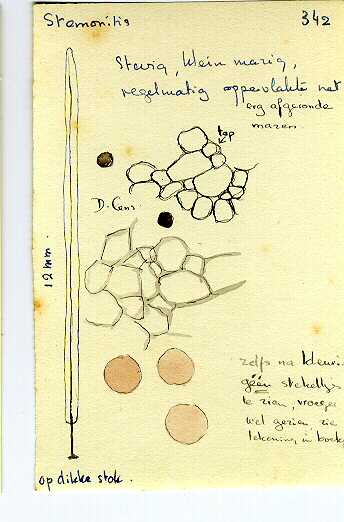 Stemonitis
342
Stevig, klein mazig,
regelmatig oppervlakte net
erg afgeronde
mazen.
top
D. Cens.
12 mm.
zelfs na kleuri
géén stekeltjes
te zien, vroeger
wel gezien, zie
tekening in boekj
op dikke stok.